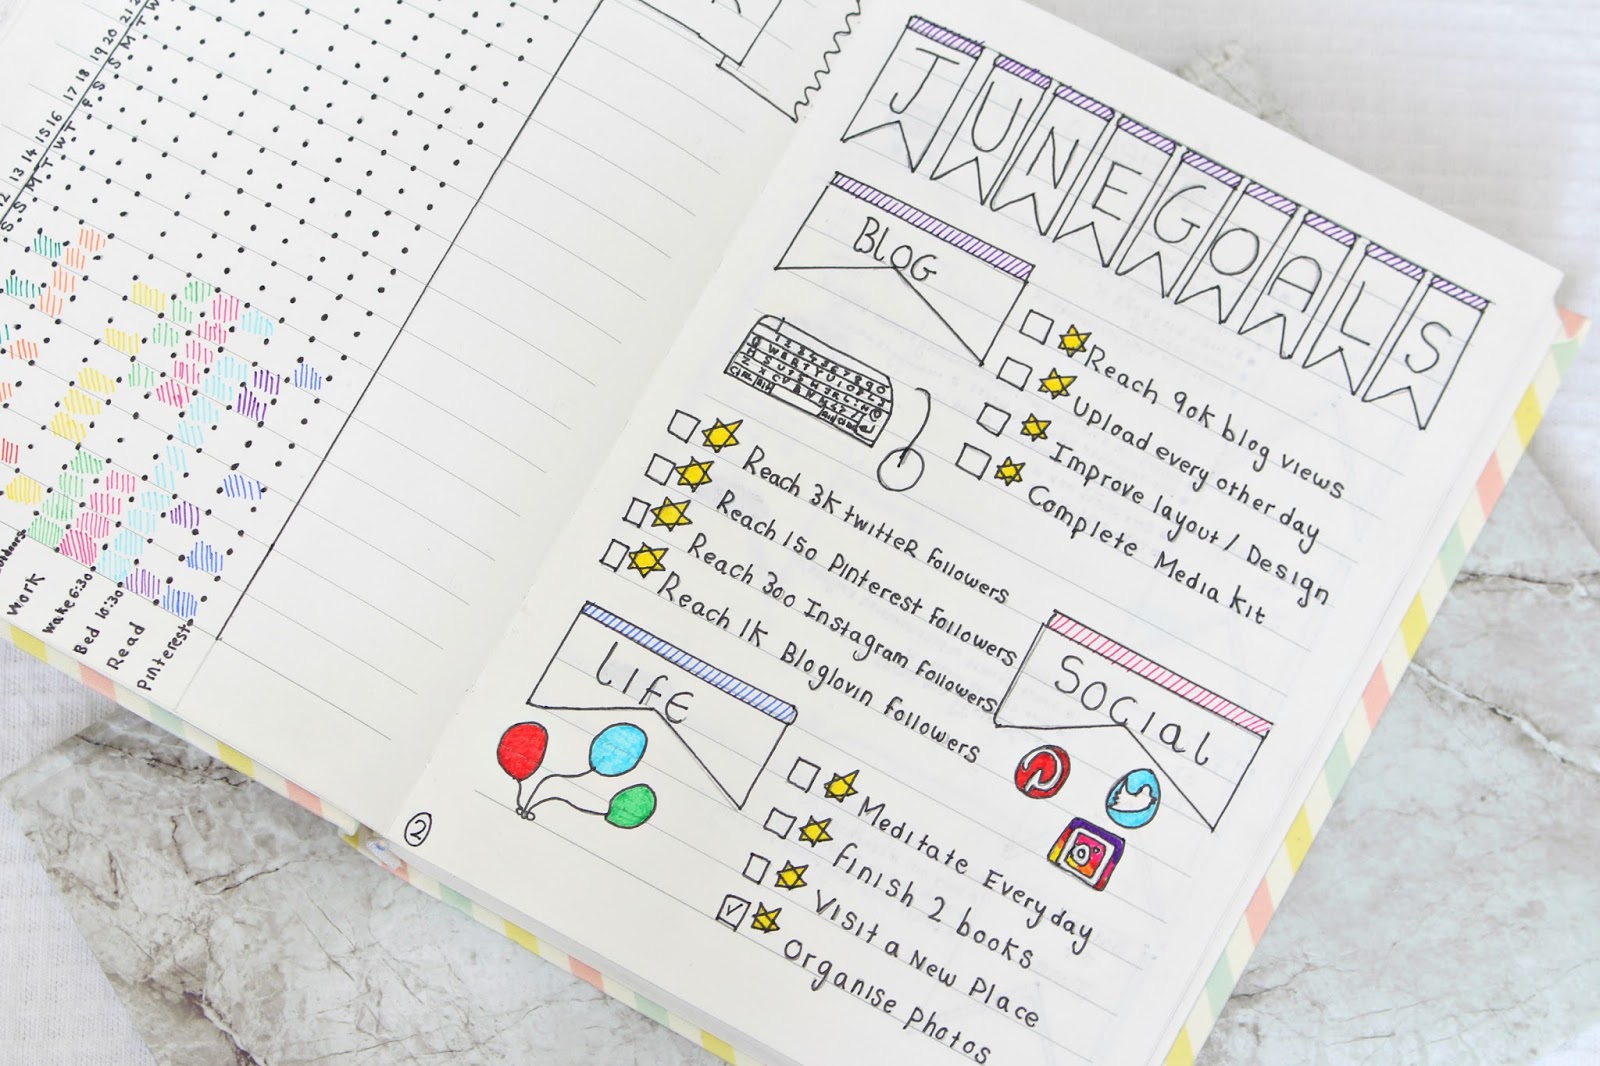 12 13 14 15 16 17 18 19 20 21
S S M T W T F S S M T W
Work
Wake 6:30
Bed 10:30
Read
Pinterest
JUNE GOALS
BLOG
Reach 90K blog views
Upload every other day
Improve layout / Design
Complete Media Kit
Reach 3K twitter followers
Reach 150 Pinterest followers
Reach 300 Instagram followers
Reach 1K Bloglovin followers
SOCial
LifE
Meditate Everyday
Finish 2 books
Visit a New Place
Organise Photos
2